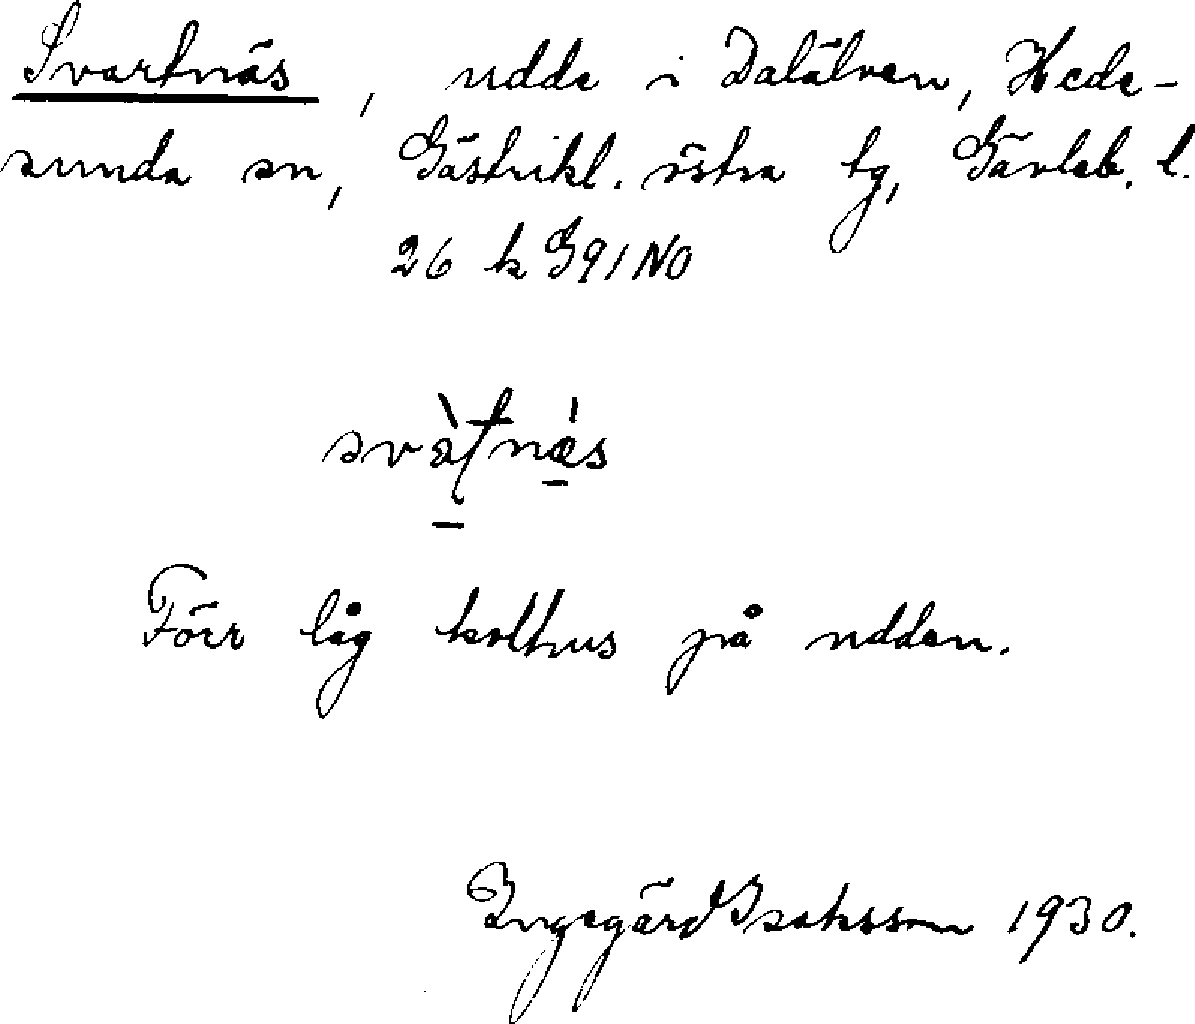 Svartnäs, udde i Dalälven, Hede-
sunda sn, Gästrikl. östra tg, Gävleb. l.
26 k G91NO
Förr låg kolhus på udden.
Ingegärd Isaksson 1930.